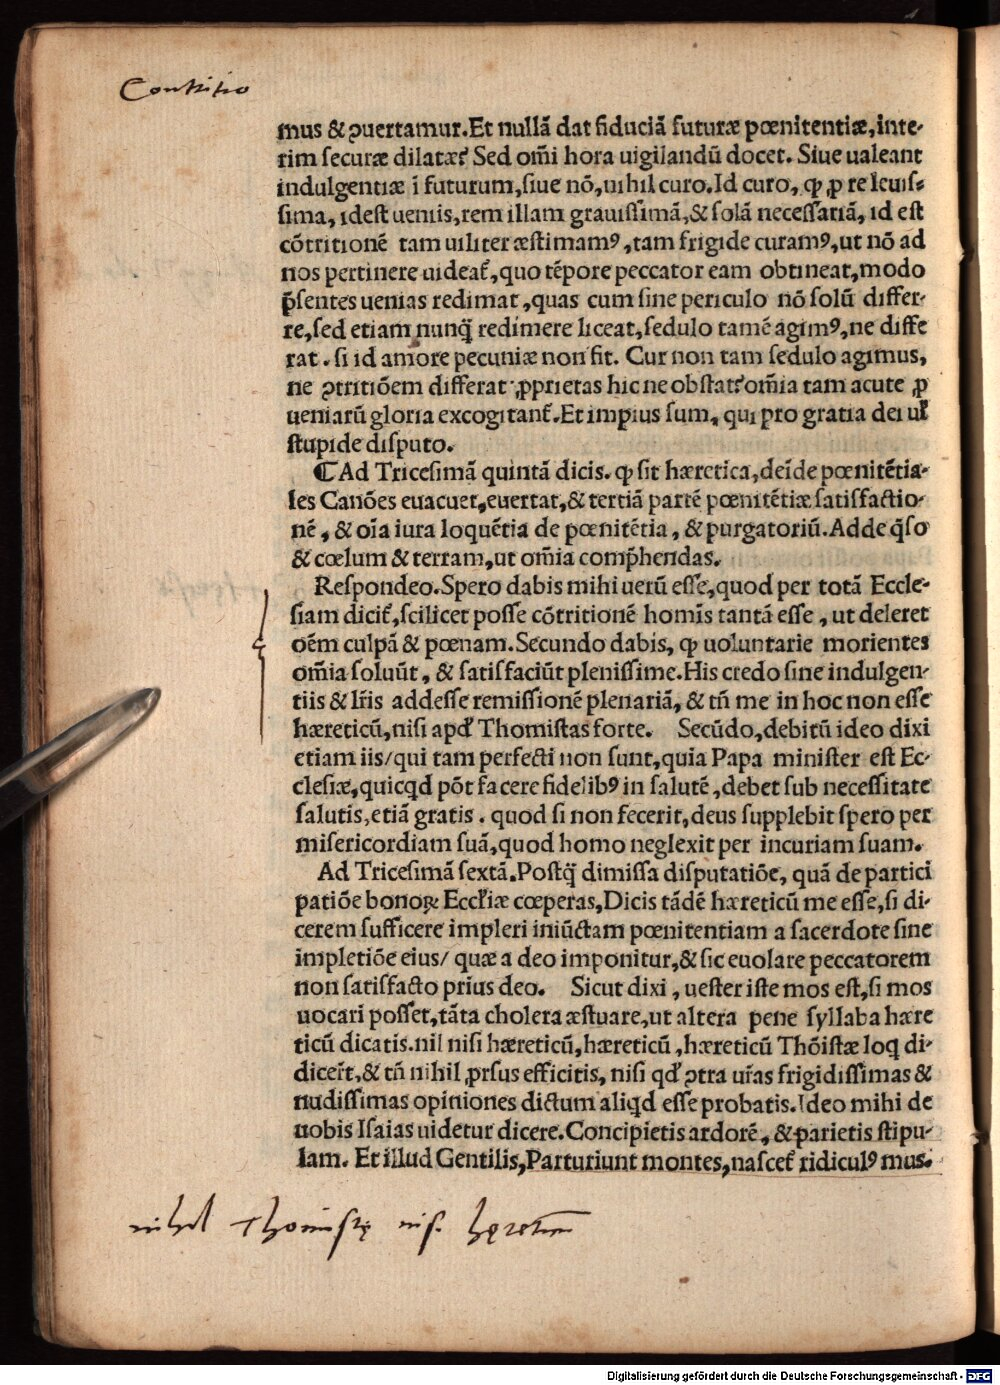 Contritio
mus & ꝯuertamur. Et nullã dat fiduciã futuræ pœnitentiæ, inte-
rim securæ dilatæ? Sed om̃i hora uigilandũ docet. Siue ualeant
indulgentiæ ĩ futurum, siue nõ, nihil curo. Id curo, ꝙ ꝓ re leuis-
sima, idest ueniis, rem illam grauissimã, & solã necessariã, id est
cõtritionẽ tam uiliter æstimamꝰ, tam frigide curamꝰ, ut nõ ad
nos pertinere uideat᷑, quo tẽpore peccator eam obtineat, modo
p̃sentes uenias redimat, quas cum sine periculo nõ solũ differ-
re, sed etiam nunq̃ redimere liceat, sedulo tamẽ agimꝰ, ne diffe
rat. si id amore pecuniæ non fit. Cur non tam sedulo agimus,
ne ꝯtritiõem differat? ꝓprietas hic ne obstat? om̃ia tam acute ꝓ
ueniarũ gloria excogitant᷑. Et impius sum, qui pro gratia dei ul̃
stupide disputo.
⸿ Ad Tricesimã quintã dicis. ꝙ sit hæretica, deĩde pœnitẽtia-
les Canões euacuet, euertat, & tertiã partẽ pœnitẽtiæ satisfactio-
nẽ, & oĩa iura loquẽtia de pœnitẽtia, & purgatoriũ. Adde q̃so
& cœlum & terram, ut om̃ia comp̃hendas.
Respondeo. Spero dabis mihi uerũ esse, quod per totã Eccle-
siam dicit᷑, scilicet posse cõtritionẽ hominis tantã esse, ut deleret
oẽm culpã & pœnam. Secundo dabis, ꝙ uoluntarie morientes
om̃ia soluũt, & satisfaciũt plenissime. His credo sine indulgen-
tiis & lr̃is addesse remissionẽ plenariã, & tñ me in hoc non esse
hæreticũ, nisi apd̓ Thomistas forte. Secũdo, debitũ ideo dixi
etiam iis/ qui tam perfecti non sunt, quia Papa minister est Ec-
clesiæ, quicqd põt facere fidelibꝰ in salutẽ, debet sub necessitate
salutis, etiã gratis. quod si non fecerit, deus supplebit spero per
misericordiam suã, quod homo neglexit per incuriam suam.
Ad Tricesimã sextã. Postq̃ dimissa disputatiõe, quã de partici
patiõe bonoꝝ Eccl̃iæ cœperas, Dicis tãdẽ hæreticũ me esse, si di-
cerem sufficere impleri iniũctam pœnitentiam a sacerdote sine
impletiõe eius/ quæ a deo imponitur, & sic euolare peccatorem
non satisfacto prius deo. Sicut dixi, uester iste mos est, si mos
uocari posset, tãta cholera æstuare, ut altera pene syllaba hære
ticũ dicatis. nil nisi hæreticũ, hæreticũ, hæreticũ Thõistæ loq di-
dicer̃t, & tñ nihil ꝓrsus efficitis, nisi qd̓ ꝯtra ur̃as frigidissimas &
nudissimas opiniones dictum aliqd esse probatis. Ideo mihi de
uobis Isaias uidetur dicere. Concipietis ardorẽ, & parietis stipu-
lam. Et illud Gentilis, Parturiunt montes, nascet᷑ ridiculꝰ mus.
nihil Thomistę nisi hęreticum
Digitalisierung gefördert durch die Deutsche Forschungsgemeinschaft - DFG